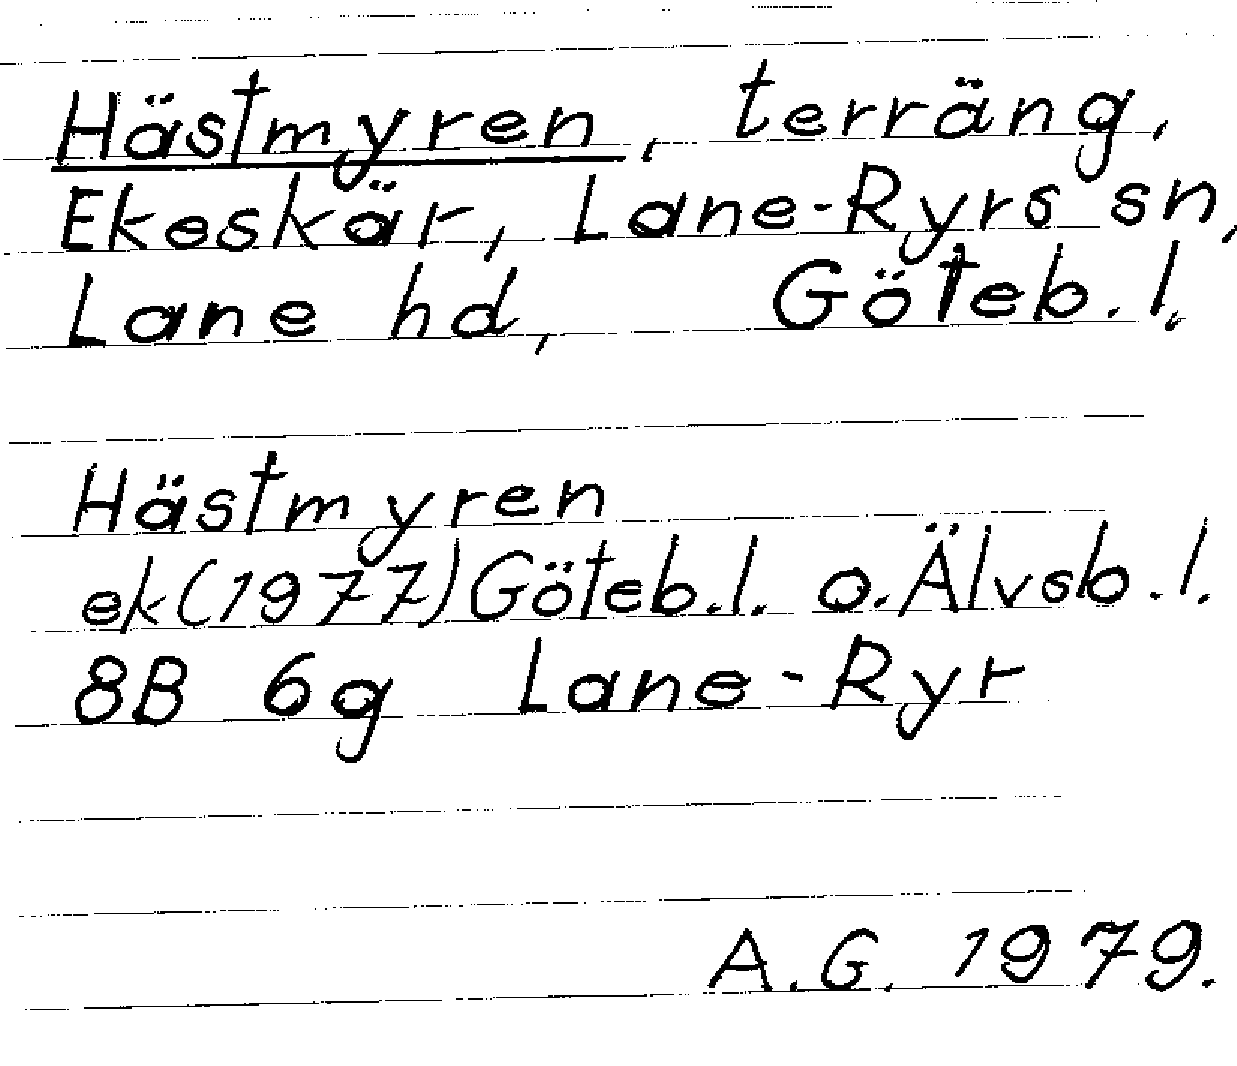 Hästmyren, terräng,
Ekeskär, Lane-Ryrs sn,
Lane hd, Göteb.l.
Hästmyren
ek(1977)Göteb.l. o.Älvsb.l.
8B 6g Lane-Ryr
A.G. 1979.